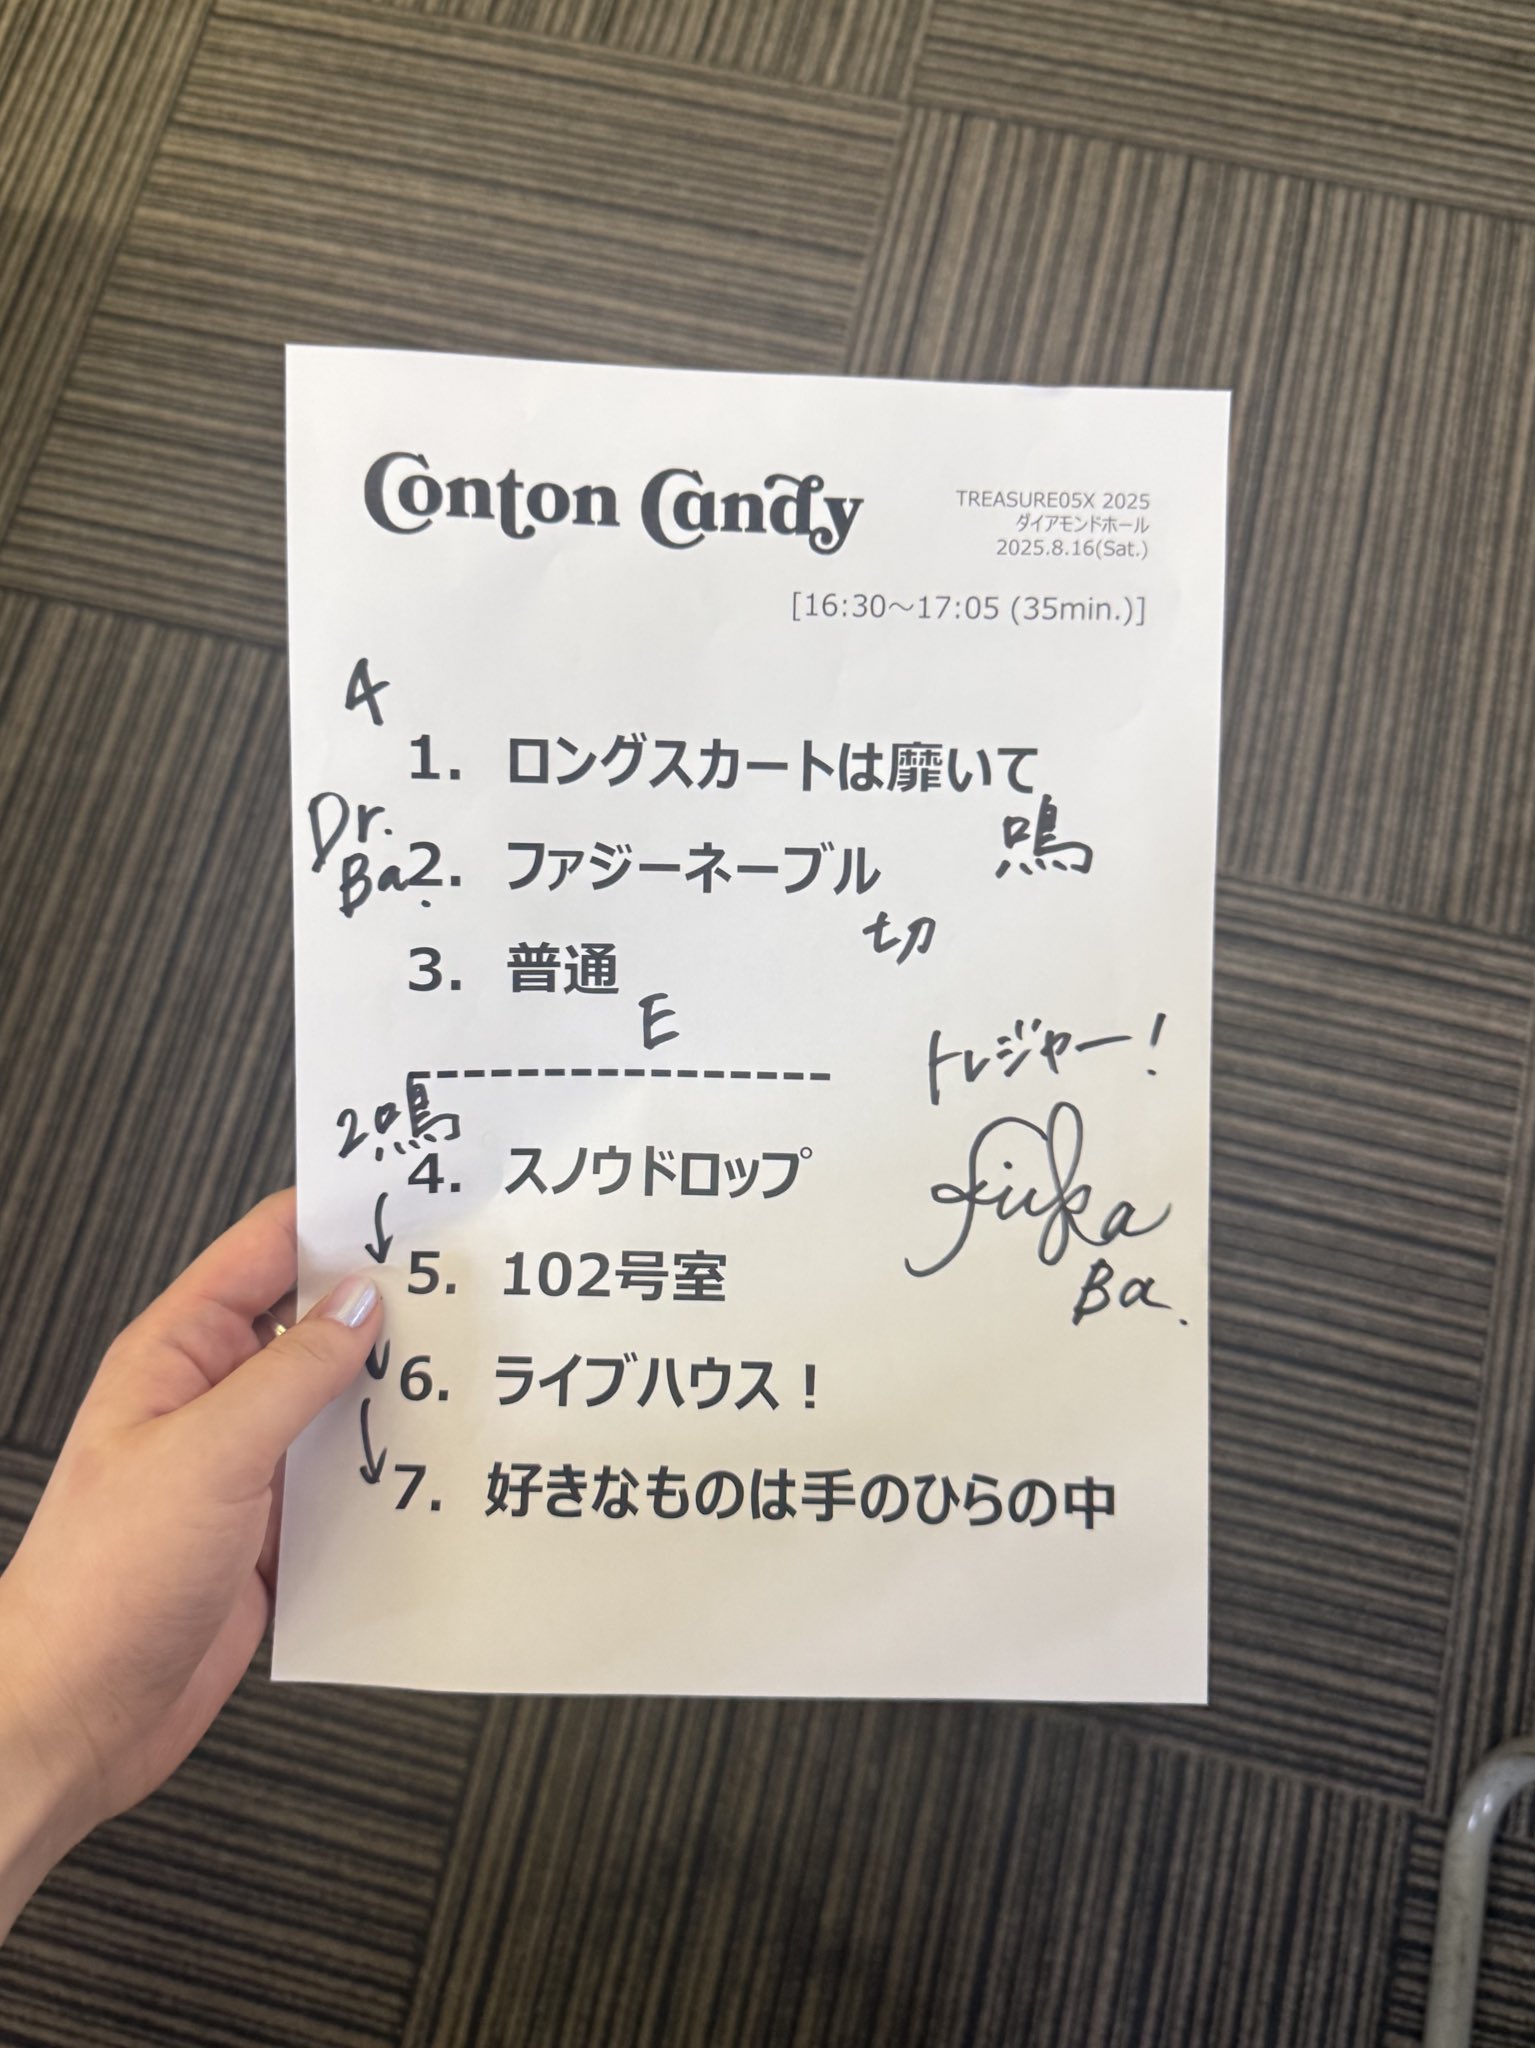 Conton Candy
TREASURE05X 2025
ダイアモンドホール
2025.8.16(Sat.)
[16:30～17:05 (35min.)]
4
1. ロングスカートは靡いて
鳴
Dr.
Ba.
2. ファジーネーブル
切
3. 普通
E
----------------
トレジャー!
2鳴
4. スノウドロップ
fuka
Ba.
5. 102号室
6. ライブハウス！
7. 好きなものは手のひらの中